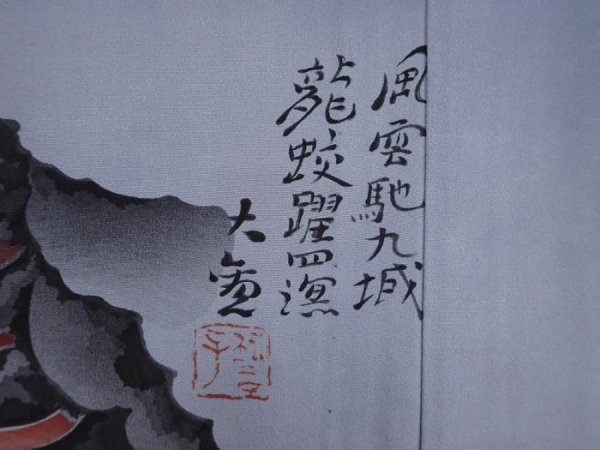 風雲馳九域
龍蛟躍四溟
大